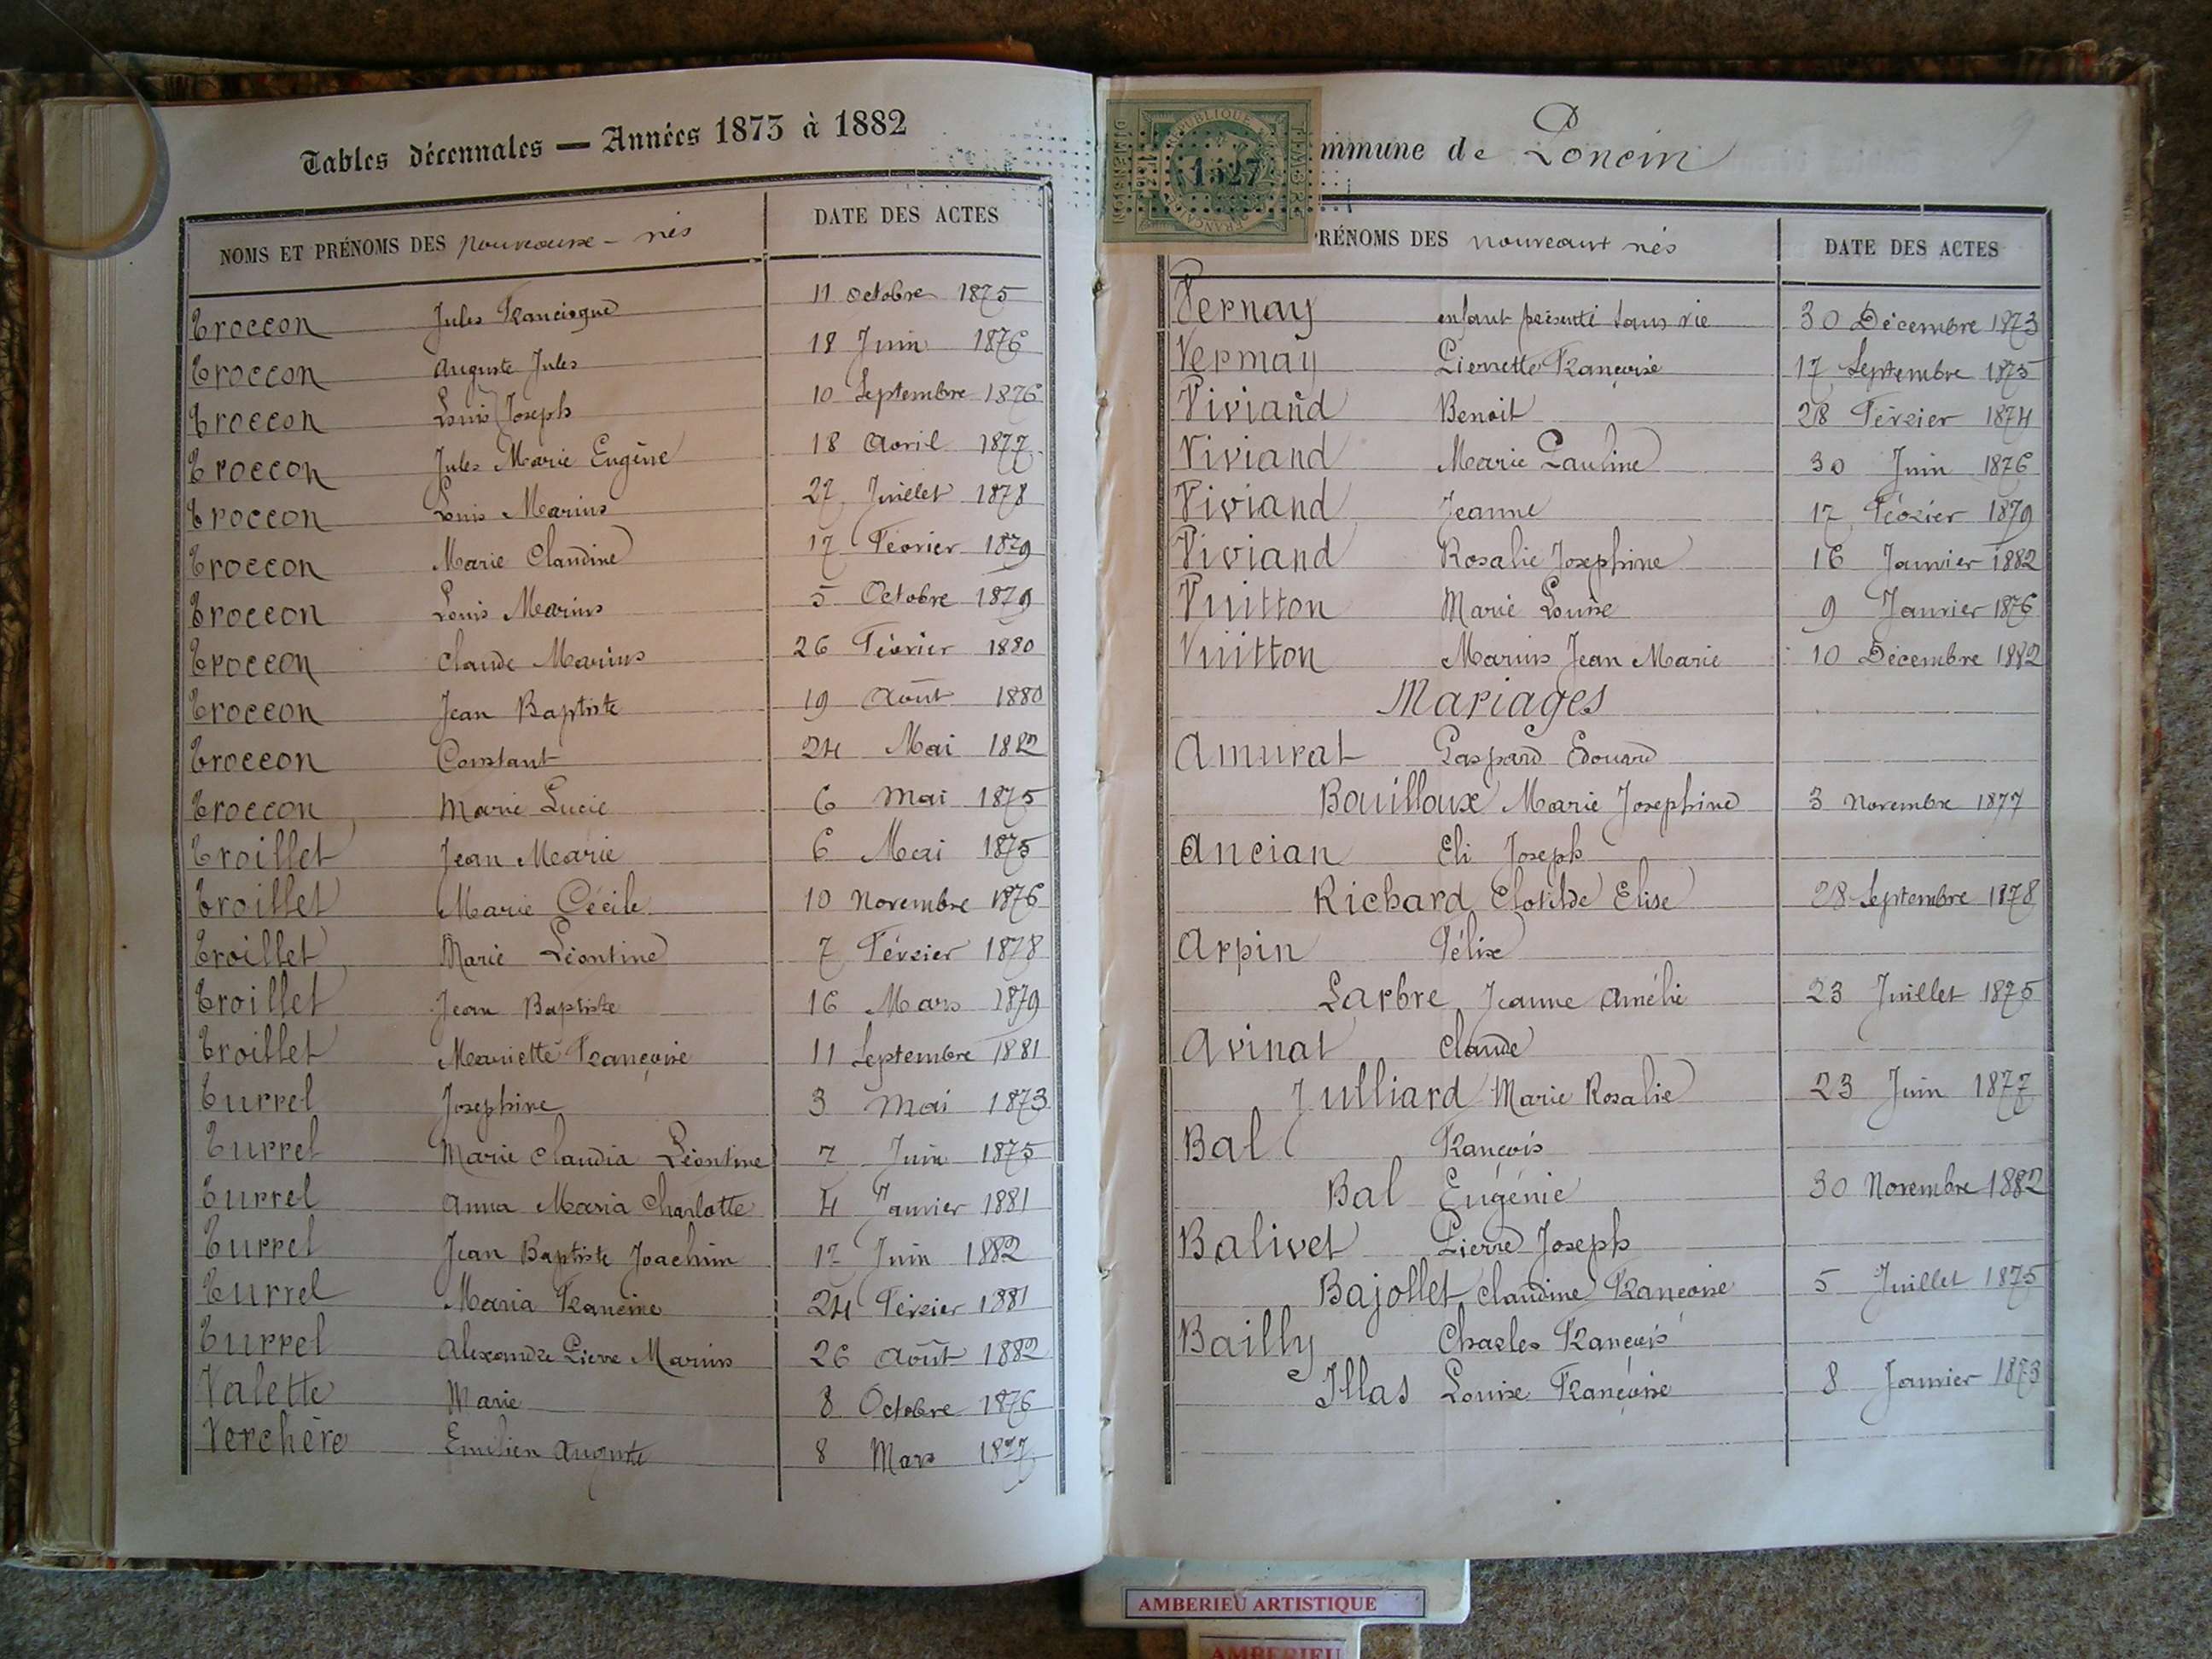 Tables décennales — Années 1873 à 1882
NOMS ET PRÉNOMS DES nouveaux-nés DATE DES ACTES
Troccon Jules Francisque 11 Octobre 1875
Troccon Auguste Jules 18 Juin 1876
Troccon Louis Joseph 10 Septembre 1876
Troccon Jules Marie Eugène 18 Avril 1877
Troccon Louis Marius 27 Juillet 1878
Troccon Marie Claudine 17 Février 1879
Troccon Louis Marius 5 Octobre 1879
Troccon Claude Marius 26 Février 1880
Troccon Jean Baptiste 19 Août 1880
Troccon Constant 24 Mai 1882
Troccon Marie Lucie 6 Mai 1875
Troillet Jean Marie 6 Mai 1875
Troillet Marie Cécile 10 Novembre 1876
Troillet Marie Léontine 7 Février 1878
Troillet Jean Baptiste 16 Mars 1879
Troillet Mariette Françoise 11 Septembre 1881
Turrel Josephine 3 Mai 1873
Turrel Marie Claudia Léontine 7 Juin 1875
Turrel Anna Maria Charlotte 4 Janvier 1881
Turrel Jean Baptiste Joachim 17 Juin 1882
Turrel Maria Francine 24 Février 1881
Turrel Alexandre Pierre Marius 26 Août 1882
Valette Marie 8 Octobre 1876
Verchère Emilien Auguste 8 Mars 1877
mmune de Poncin
RÉPUBLIQUE FRANÇAISE
TIMBRE DIMENSION
1527
PRÉNOMS DES nouveaux nés DATE DES ACTES
Vernay enfant présenté sans vie 30 Décembre 1873
Vernay Pierrette Françoise 17 Septembre 1875
Viviand Benoit 28 Février 1874
Viviand Marie Pauline 30 Juin 1876
Viviand Jeanne 17 Février 1879
Viviand Rosalie Josephine 16 Janvier 1882
Vuitton Marie Louise 9 Janvier 1876
Vuitton Marius Jean Marie 10 Décembre 1882
Mariages
Amurat Gaspard Edouard
Bouilloux Marie Josephine 3 Novembre 1877
Ancian Eli Joseph
Richard Clotilde Elise 28 Septembre 1878
Arpin Félix
Larbre Jeanne Amélie 23 Juillet 1875
Avinat Claude
Julliard Marie Rosalie 23 Juin 1877
Bal François
Bal Eugénie 30 Novembre 1882
Balivet Pierre Joseph
Bajollet Claudine Françoise 5 Juillet 1875
Bailly Charles François
Illas Louise Françoise 8 Janvier 1873
AMBERIEU ARTISTIQUE
AMBERIEU